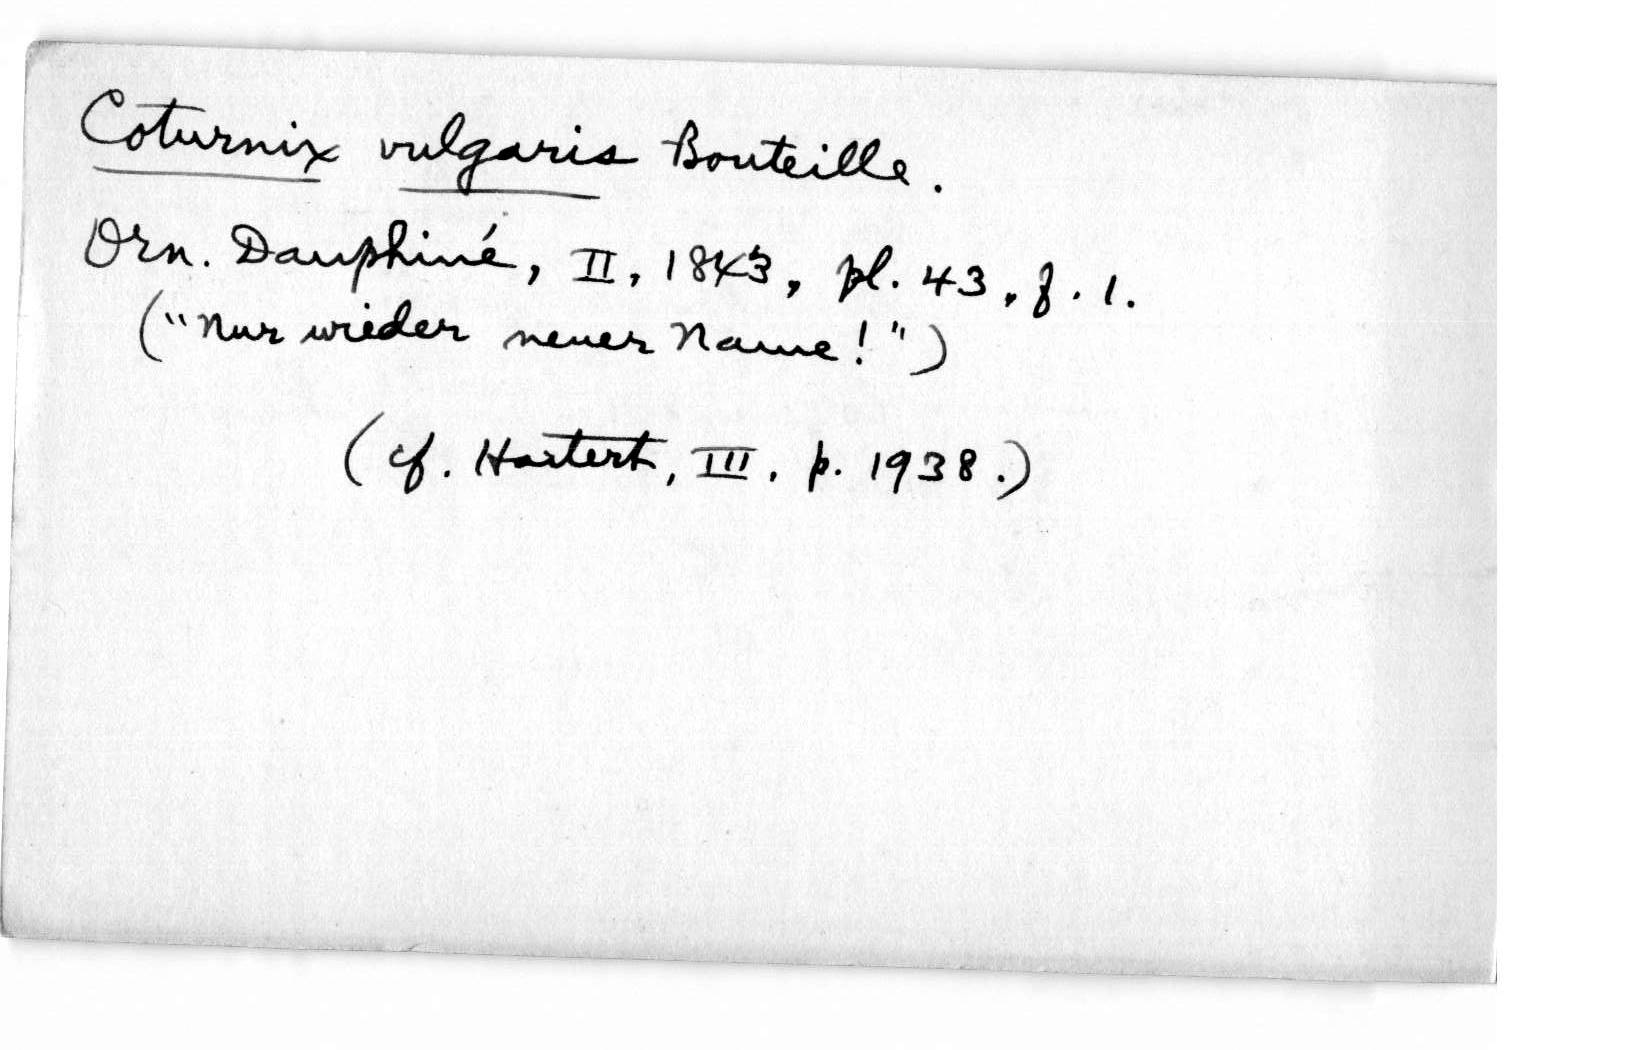 Coturnix vulgaris Bouteille.
Orn. Dauphiné, II, 1843, pl. 43, f. 1.
("Nur wieder neuer Name!")
(cf. Hartert, III. p. 1938.)